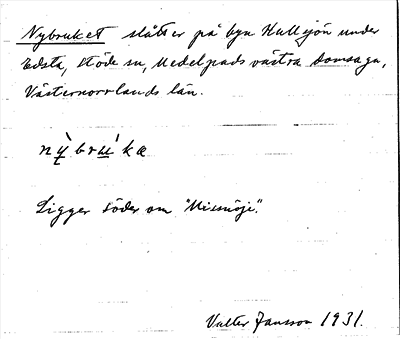 Nybruket slåtter på byn Hullsjön under
Edsta, Stöde sn, Medelpads västra domsaga,
Västernorrlands län.
nỳ̲brú̲kæ
Ligger söder om "Missnöje".
Valter Jansson 1931.